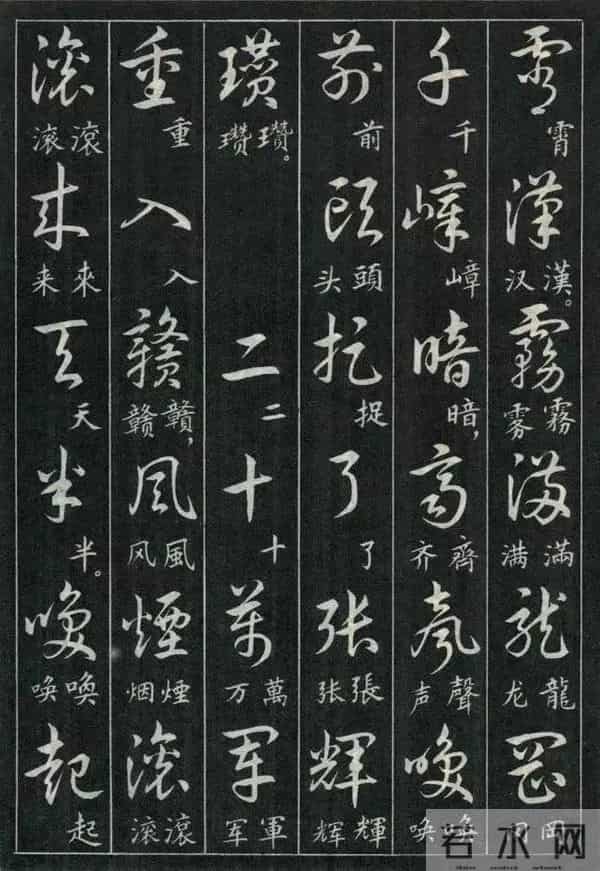 霄霄漢漢。汉霧霧雾滿滿满龍龍龙岡岡
千千嶂嶂暗暗，齊齊齐聲聲声喚喚唤
前前頭頭头捉捉了了張張张輝輝辉
瓚瓚。瓒二二十十萬萬万軍軍军
重重入入贛贛，赣風風风煙煙烟滾滾滚
滾滾滚來來来天天半半。喚喚唤起起
若水网